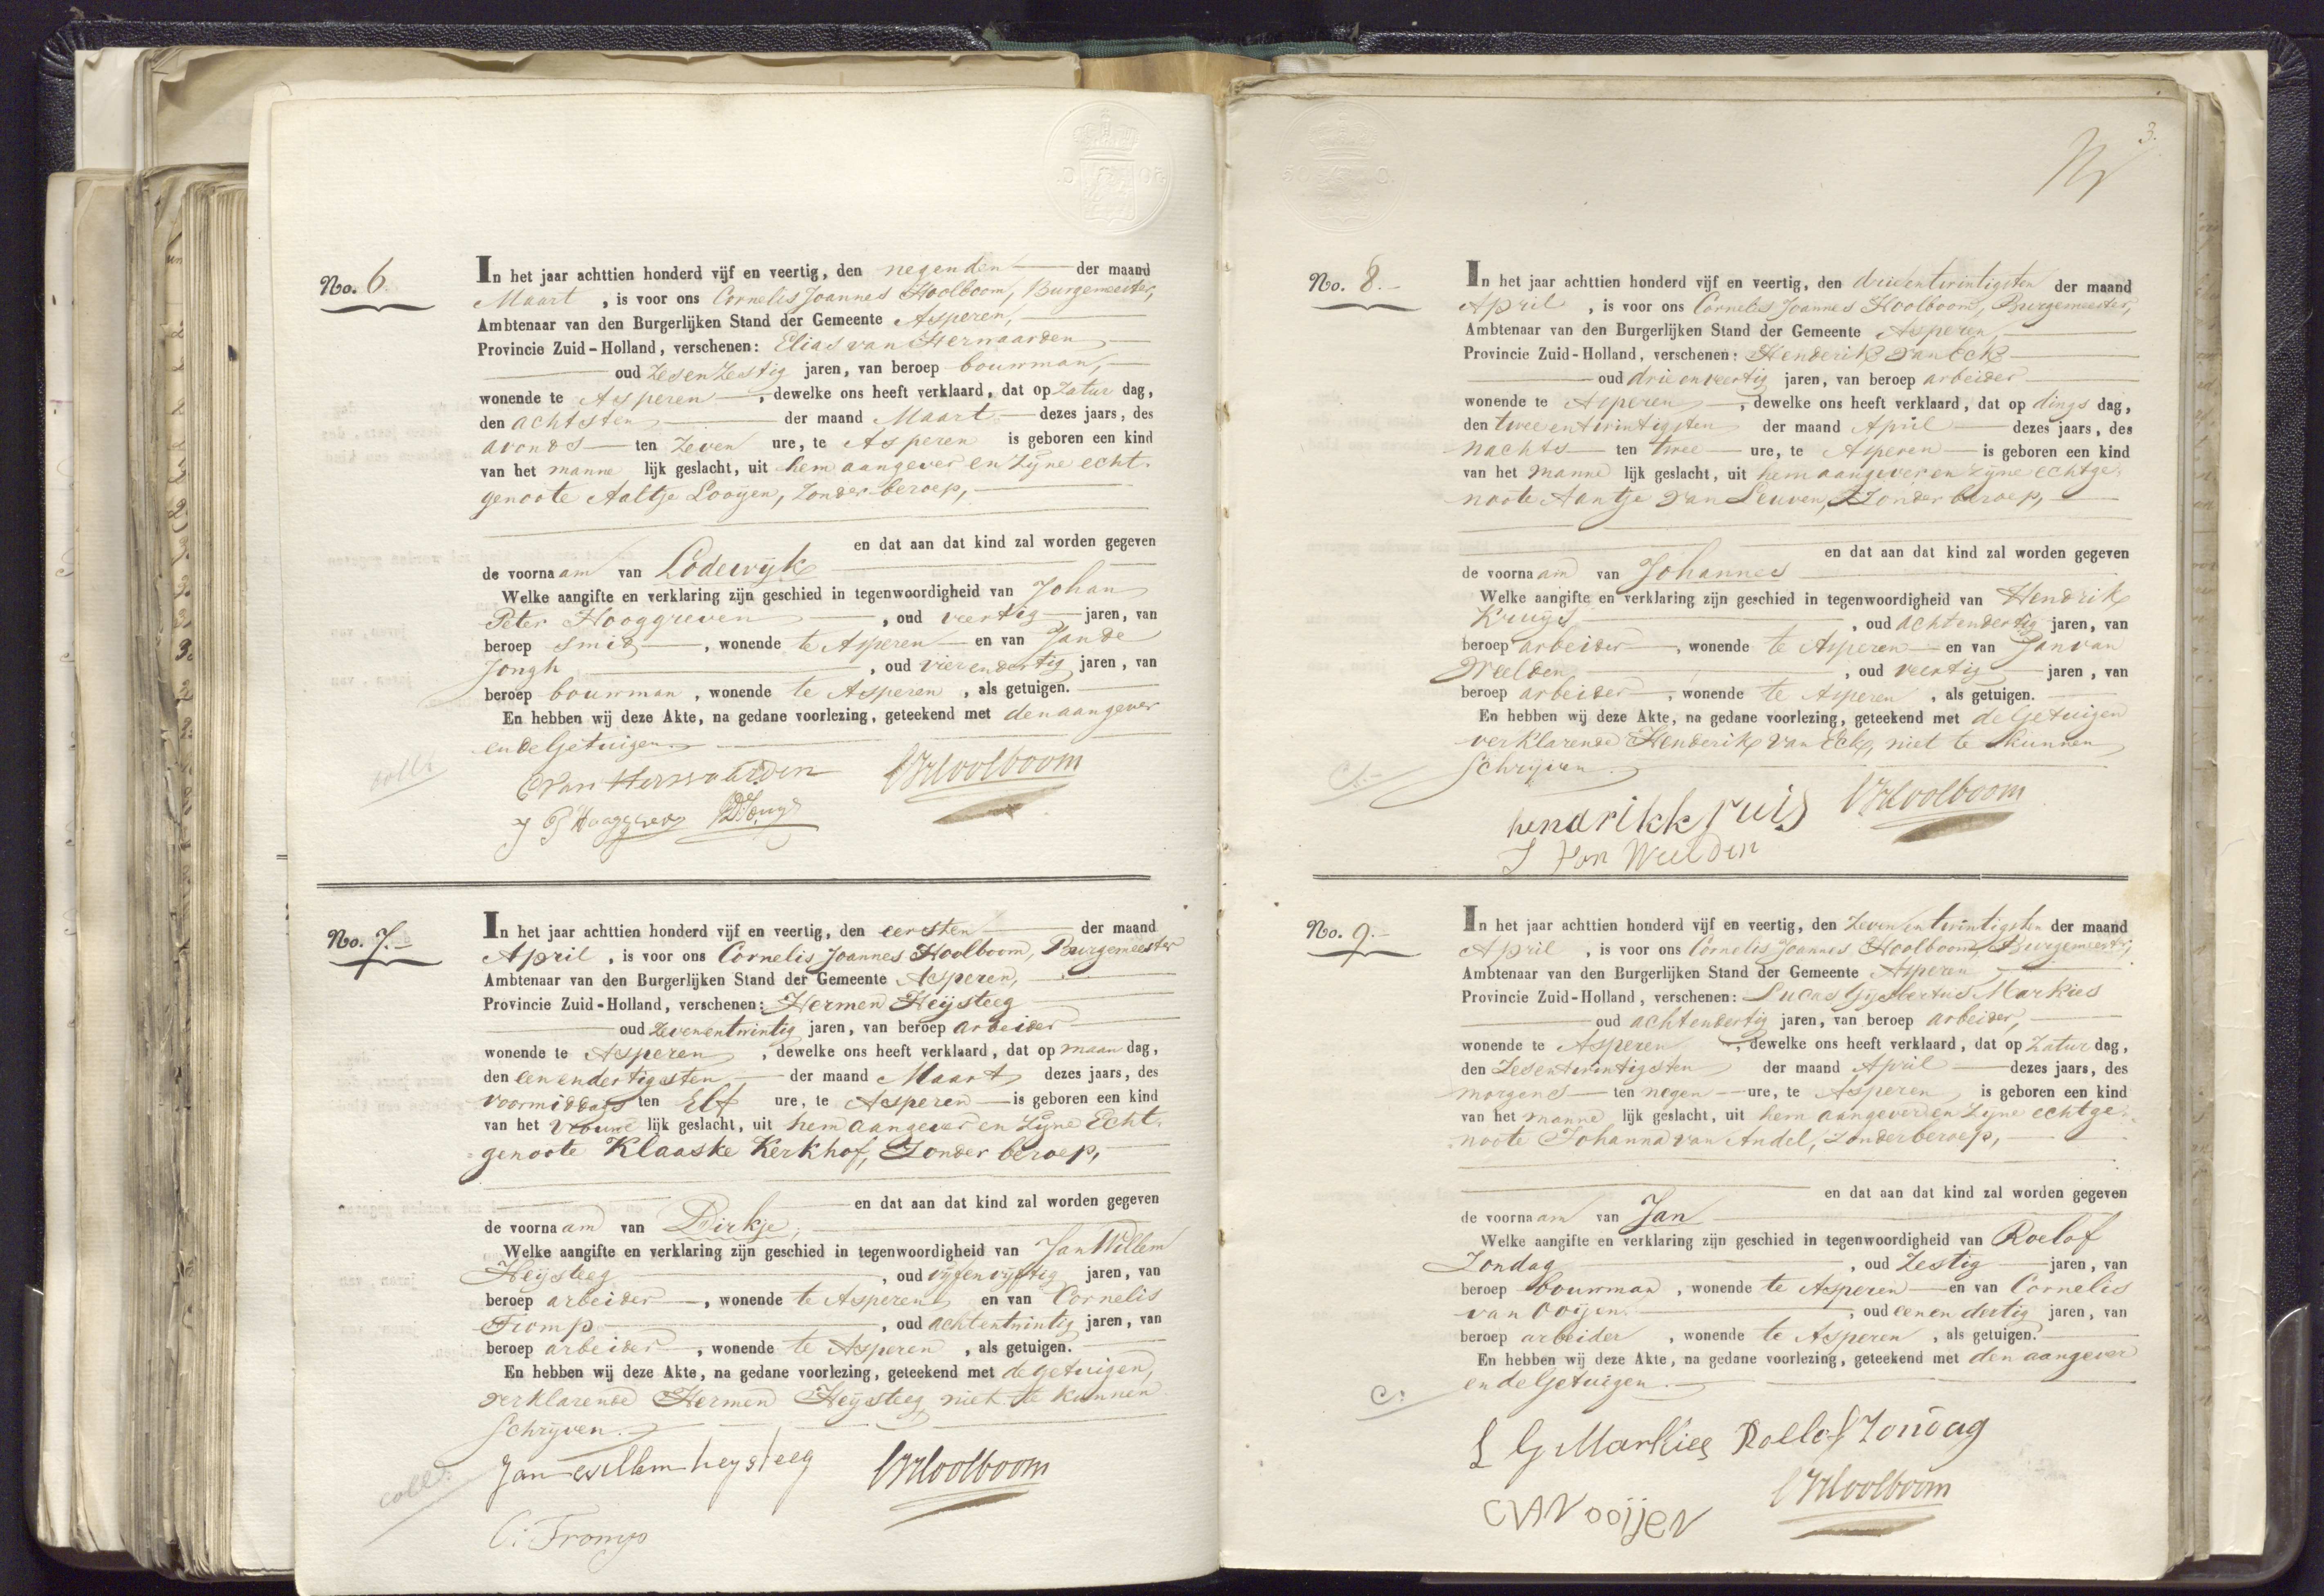 No. 6.
In het jaar achttien honderd vijf en veertig, den negenden der maand
Maart, is voor ons Cornelis Joannes Hoolboom, Burgemeester,
Ambtenaar van den Burgerlijken Stand der Gemeente Asperen,
Provincie Zuid-Holland, verschenen: Elias van Herwaarden
oud Zesenzestig jaren, van beroep bouwman,
wonende te Asperen, dewelke ons heeft verklaard, dat op Zatur dag,
den achtsten der maand Maart dezes jaars, des
avonds ten Zeven ure, te Asperen is geboren een kind
van het manne lijk geslacht, uit hem aangever en Zijne echt-
genoote Aaltje Looijen, Zonder beroep,
en dat aan dat kind zal worden gegeven
de voornaam van Lodewijk
Welke aangifte en verklaring zijn geschied in tegenwoordigheid van Johan
Peter Hooggreven, oud veertig jaren, van
beroep Smid, wonende te Asperen en van Jan de
Jongh, oud vierendertig jaren, van
beroep bouwman, wonende te Asperen, als getuigen.
En hebben wij deze Akte, na gedane voorlezing, geteekend met den aangever
en de Getuigen.
E van Herwaarden CJHoolboom
J P Hooggreven
coll:
No. 7.
In het jaar achttien honderd vijf en veertig, den eersten der maand
April, is voor ons Cornelis Joannes Hoolboom, Burgemeester
Ambtenaar van den Burgerlijken Stand der Gemeente Asperen,
Provincie Zuid-Holland, verschenen: Hermen Heijsteeg
oud Zevenentwintig jaren, van beroep arbeider
wonende te Asperen, dewelke ons heeft verklaard, dat op maan dag,
den eenendertigsten der maand Maart dezes jaars, des
voormiddags ten Elf ure, te Asperen is geboren een kind
van het Vrouwe lijk geslacht, uit hem aangever en Zijne Echt-
genoote Klaaske Kerkhof, Zonder beroep,
en dat aan dat kind zal worden gegeven
de voornaam van Dirkje,
Welke aangifte en verklaring zijn geschied in tegenwoordigheid van Jan Willem
Heijsteeg, oud vijfenvijftig jaren, van
beroep arbeider, wonende te Asperen en van Cornelis
Tromp, oud achtentwintig jaren, van
beroep arbeider, wonende te Asperen, als getuigen.
En hebben wij deze Akte, na gedane voorlezing, geteekend met de getuigen,
verklarende Hermen Heijsteeg niet te kunnen
Schrijven.
Jan willem heysteeg CJHoolboom
coll:
C: Tromp
3.
No. 8.
In het jaar achttien honderd vijf en veertig, den drieentwintigsten der maand
April, is voor ons Cornelis Joannes Hoolboom, Burgemeester,
Ambtenaar van den Burgerlijken Stand der Gemeente Asperen,
Provincie Zuid-Holland, verschenen: Henderik van Eck
oud drieenveertig jaren, van beroep arbeider
wonende te Asperen, dewelke ons heeft verklaard, dat op dings dag,
den tweeentwintigsten der maand April dezes jaars, des
nachts ten twee ure, te Asperen is geboren een kind
van het manne lijk geslacht, uit hem aangever en zijne echtge-
noote Aantje van Leuven, Zonder beroep,
en dat aan dat kind zal worden gegeven
de voornaam van Johannes
Welke aangifte en verklaring zijn geschied in tegenwoordigheid van Hendrik
Kruijs, oud achtendertig jaren, van
beroep arbeider, wonende te Asperen en van Jan van
Weelden, oud veertig jaren, van
beroep arbeider, wonende te Asperen, als getuigen.
En hebben wij deze Akte, na gedane voorlezing, geteekend met de Getuigen
verklarende Henderik van Eck, niet te kunnen
Schrijven.
hendrik kruis CJHoolboom
J van Weelden
No. 9.
In het jaar achttien honderd vijf en veertig, den Zevenentwintigsten der maand
April, is voor ons Cornelis Joannes Hoolboom, Burgemeester,
Ambtenaar van den Burgerlijken Stand der Gemeente Asperen
Provincie Zuid-Holland, verschenen: Lucas Gijsbertus Markies
oud achtendertig jaren, van beroep arbeider,
wonende te Asperen, dewelke ons heeft verklaard, dat op Zatur dag,
den Zesentwintigsten der maand April dezes jaars, des
morgens ten negen ure, te Asperen is geboren een kind
van het manne lijk geslacht, uit hem aangever en Zijne echtge-
noote Johanna van Andel, Zonder beroep,
en dat aan dat kind zal worden gegeven
de voornaam van Jan
Welke aangifte en verklaring zijn geschied in tegenwoordigheid van Roelof
Zondag, oud Zestig jaren, van
beroep bouwman, wonende te Asperen en van Cornelis
van Ooijen, oud eenendertig jaren, van
beroep arbeider, wonende te Asperen, als getuigen.
En hebben wij deze Akte, na gedane voorlezing, geteekend met den aangever
en de Getuigen.
C:
L G Markies Roelof Zondag
CJHoolboom
C VAN ooijen